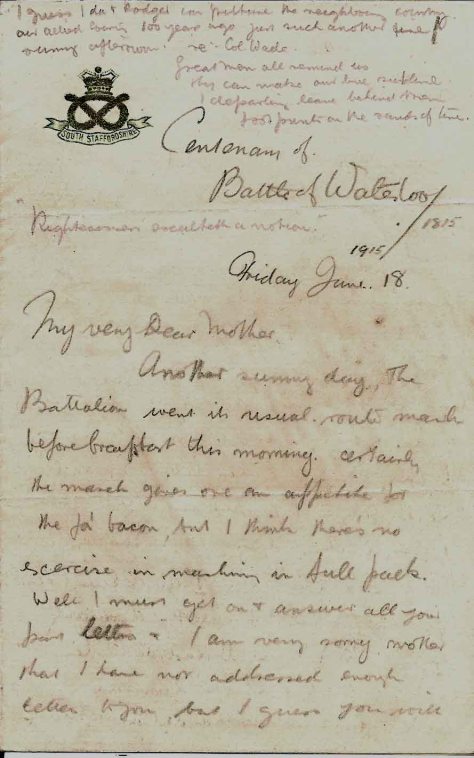 I guess Ida & Rodger can picture the neighbouring country
our allied County 100 years ago just such another June
sunny afternoon. re. Col Wade.
Great men all remind us
they can make our live sublime
& departing leave behind them
footprints on the sands of time.
SOUTH STAFFORDSHIRE
Centenary of.
Battle of Waterloo
1915/1815
"Righteousness exalteth a nation."
Friday June. 18.
My very Dear Mother.
Another sunny day, The
Battalion went its usual route march
before breakfast this morning. certainly
the march gives one an appetite for
the bacon, but I think there's no
exercise in marching in full pack.
Well I must get on & answer all your
past letters. I am very sorry mother
that I have not addressed enough
letter to you but I guess you will